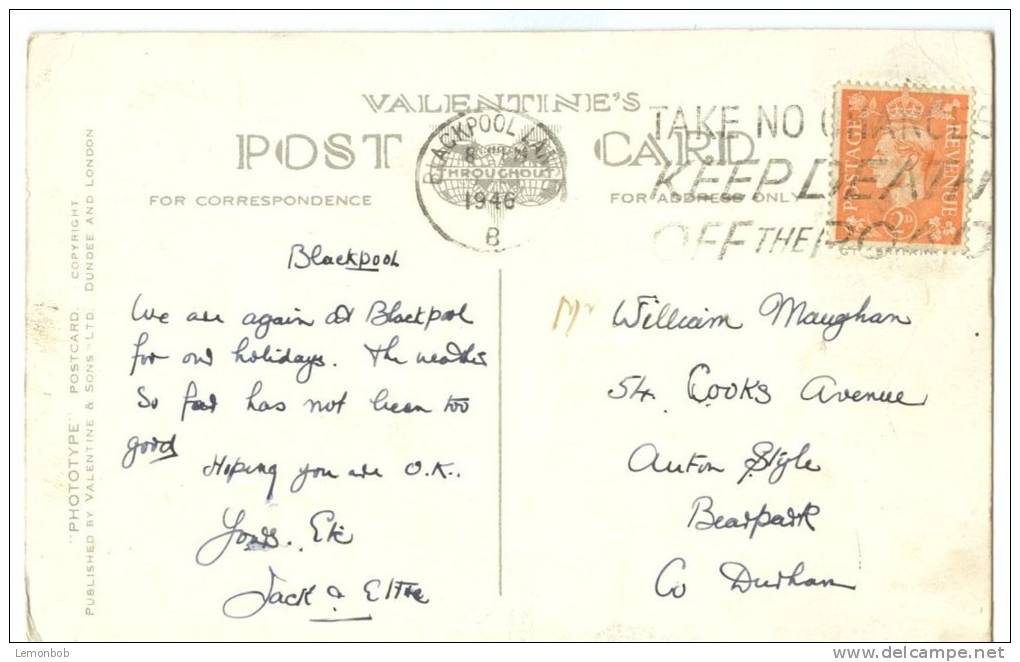 VALENTINE'S
POST CARD
FOR CORRESPONDENCE
FOR ADDRESS ONLY
BLACKPOOL
THROUGHOUT
1946
B
TAKE NO CHANCES
KEEP DEATH
OFF THE ROAD
POSTAGE REVENUE
2D
"PHOTOTYPE" POSTCARD. COPYRIGHT
PUBLISHED BY VALENTINE & SONS LTD. DUNDEE AND LONDON
Blackpool
We are again at Blackpool
for our holidays. The weather
So far has not been too
good
Hoping you are O.K..
Yours. Etc
Jack &
Mr William Maughan
54. Cooks Avenue
Bearpark
Co Durham
Lemonbob